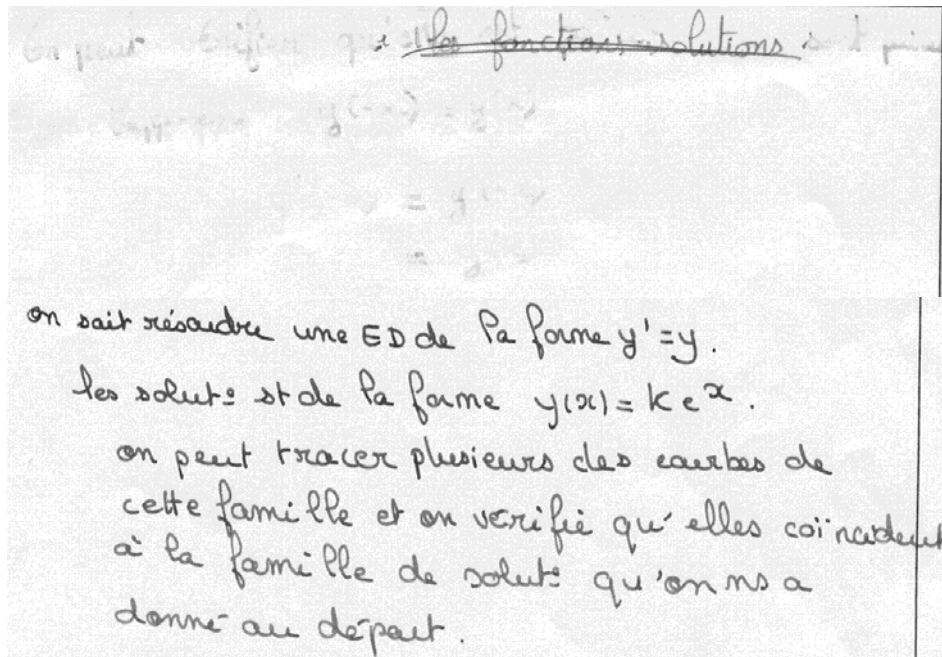 les fonctions solutions
on sait résoudre une ED de la forme y'=y.
les solut° st de la forme y(x) = K e^x.
on peut tracer plusieurs des courbes de
cette famille et on vérifie qu'elles coïncident
à la famille de solut° qu'on ns a
donné au départ.